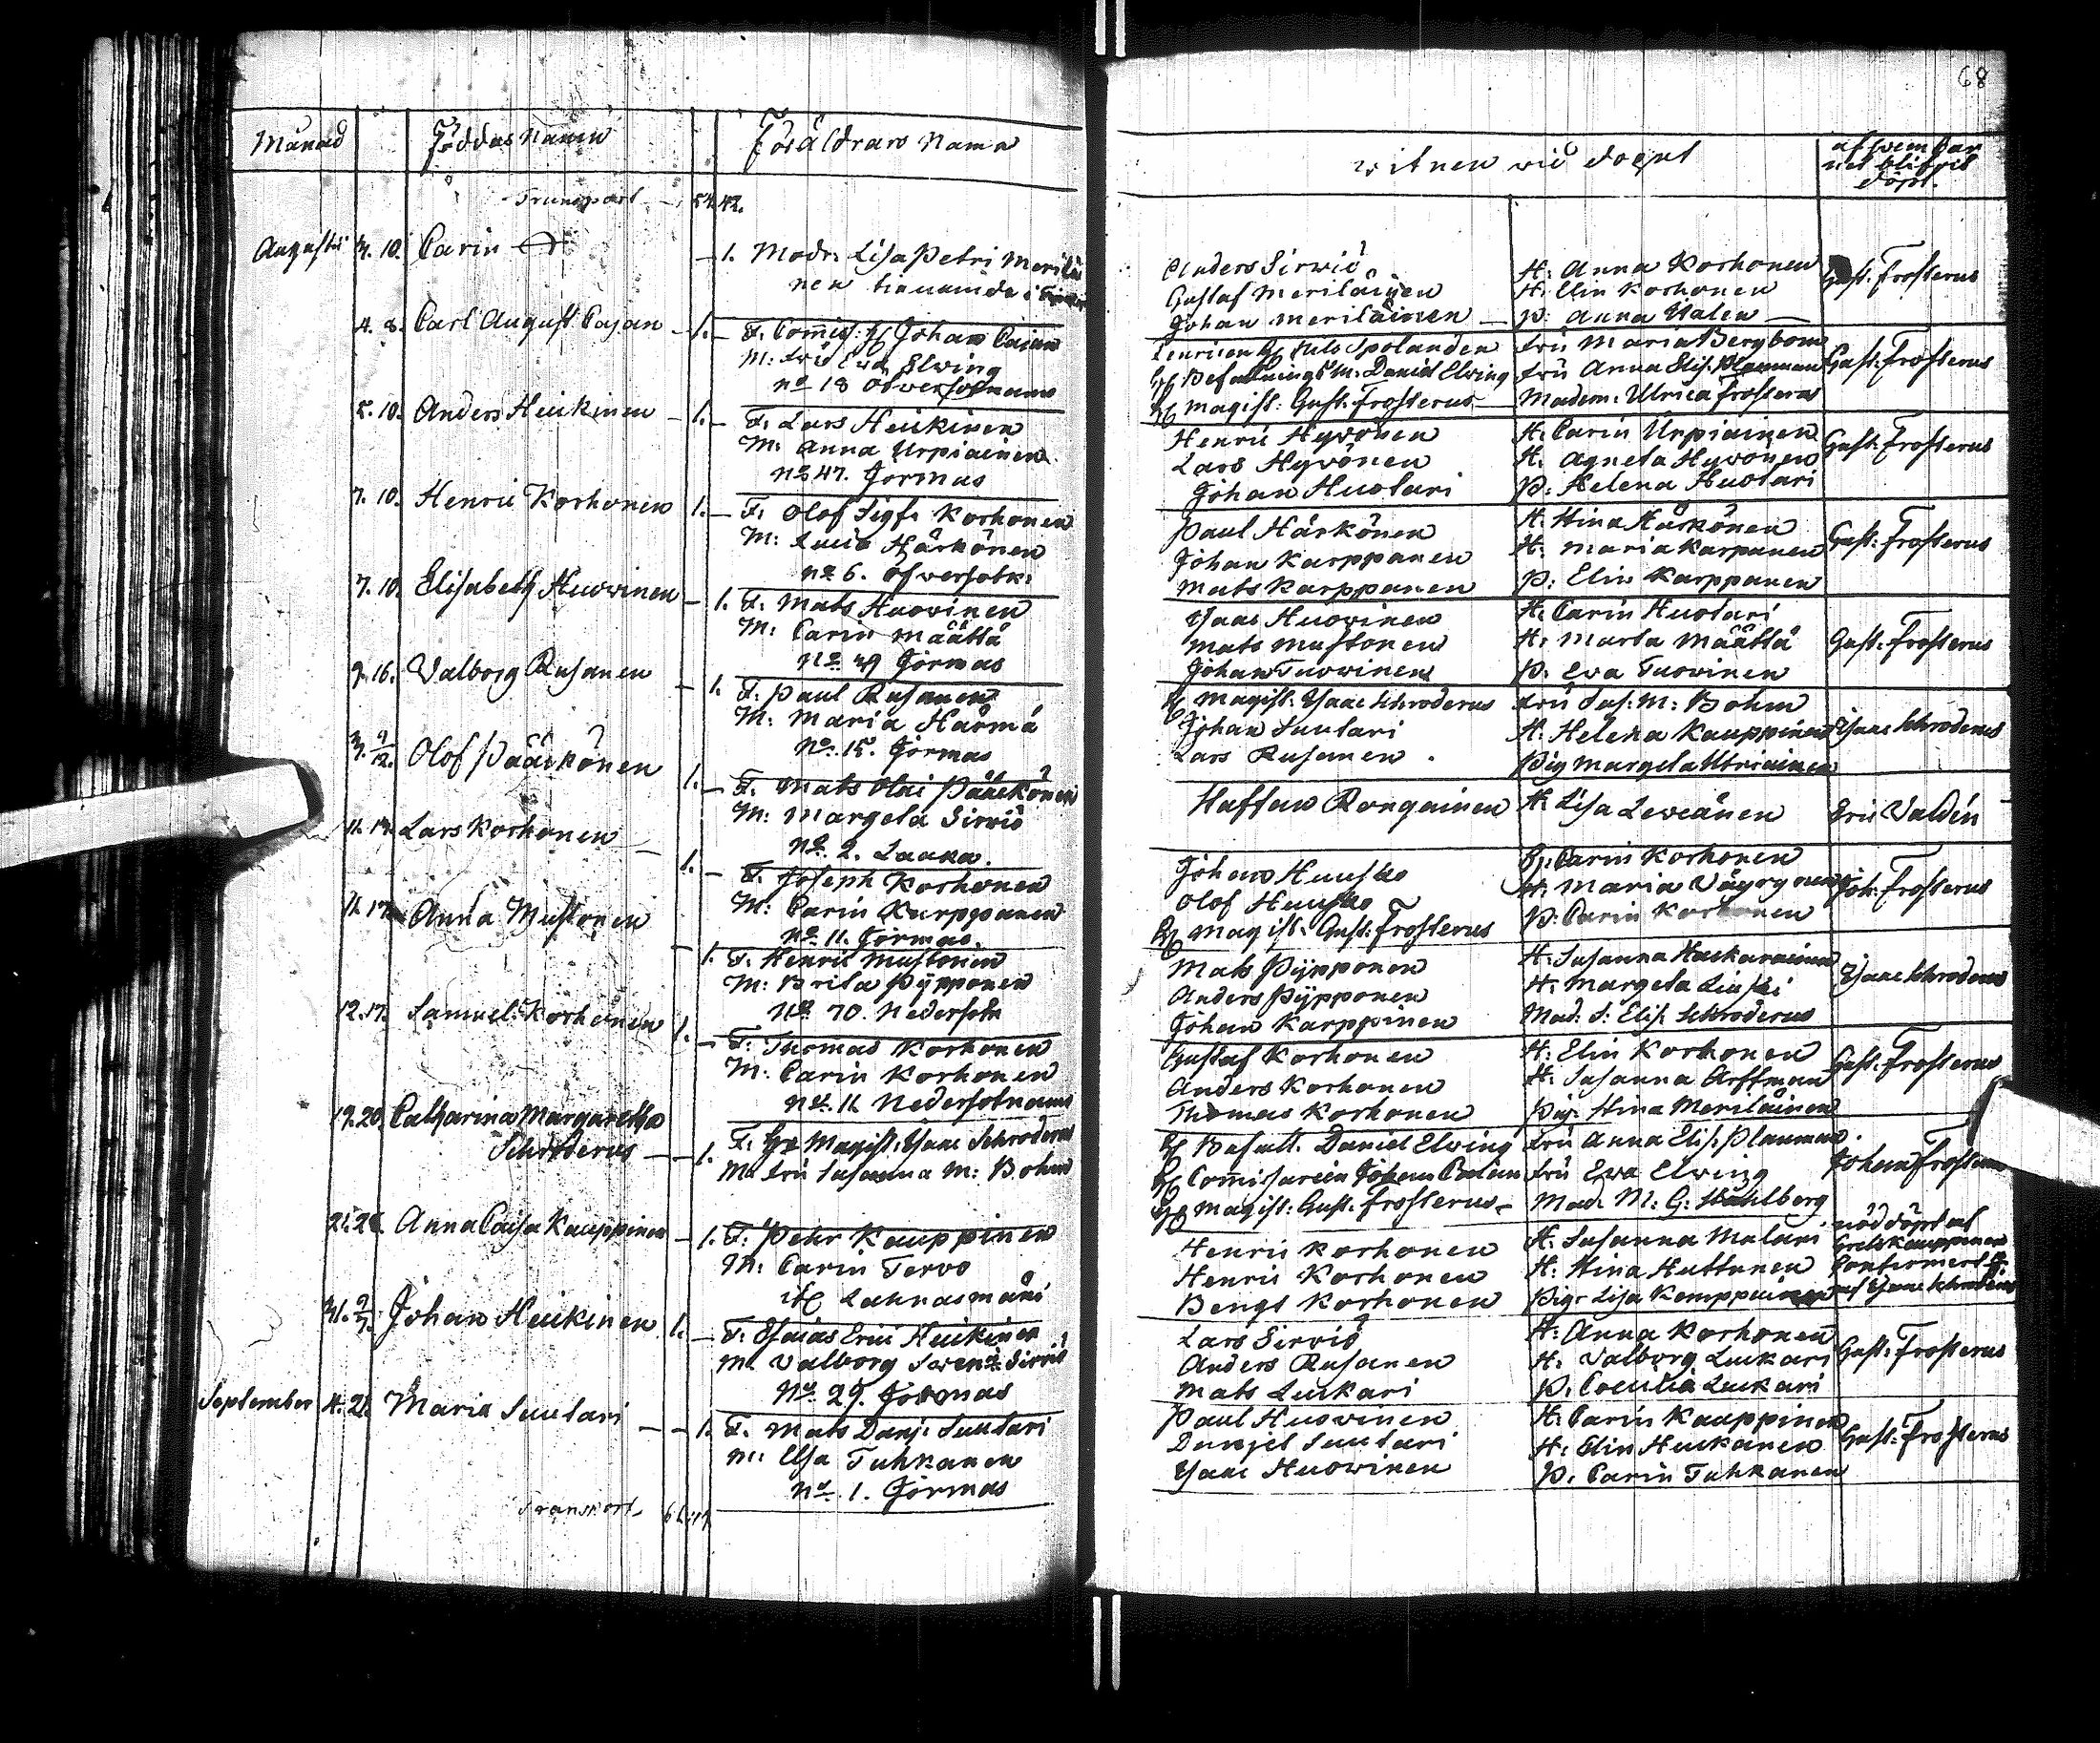 Månad
Föddas Namn
Föräldrars Namn
Transport
Augustii 3. 10. Carin
1. Modr: Lisa Petri Meriläi
nen
4. 8. Carl August Cajan
1. F. Comiss: H Johan Cajan
M: Fru Eva Elving
No 18 Öfwersotnamo
5. 10. Anders Heikinen
1. F. Lars Heikinen
M: Anna Urpiainen
No 47. Jormas
7. 10. Henric Korhonen
1. F. Olof Sigfr Korhonen
M: Lucia Härkönen
No 6. Öfwersotk:
7. 10. Elisabeth Huovinen
1. F. Mats Huovinen
M: Carin Määttä
No Jormas
9. 16. Valborg Rusanen
1. F. Paul Rusanen
M: Maria Härmä
No 15. Jormas
Olof Pääskönen
1. F. Mats Olai Pääskönen
M: Margeta Sirviö
No 2. Laaka.
11. 17. Lars Korhonen
1. F. Joseph Korhonen
M: Carin Karppanen
No 11. Jormas.
11. 17. Anna Mustonen
1. F. Henric Mustonen
M: Brita Pypponen
No 70. Nedersotn
12. 17. Samuel Korhonen
1. F. Thomas Korhonen
M: Carin Korhonen
No 11 Nedersotnamo
19. 20. Catharina Margaretha
Schroderus
1. F. Hr Magist: Isaac Schroderus
M. Fru Susanna M: Bohm
Anna Caisa Kauppinen
1. F. Pehr Kauppinen
M: Carin Tervo
Lahnasmäki
31. Johan Heikinen
1. F. Esaias Erici Heikinen
M. Valborg Svens: Sirviö
No 29. Jormas
September 4. 21. Maria Suutari
1. F. Mats Danj: Suutari
M: Elsa Tuhkanen
No 1. Jormas
Transport
68
witnen wid dopet
af hwem bar
net blifvit
döpt.
Anders Sirwiö
H: Anna Korhonen
Gust: Frosterus
Gustaf Meriläinen
H: Elin Korhonen
Johan Meriläinen
P: Anna Valen
Nils Spolander
Fru Maria Bergbom
H Befallningsm. Daniel Elving
Fru Anna Elis: Planman
Gust: Frosterus
H Magist: Gust: Frosterus
Madem: Ulrica Frosterus
Henric Hyvönen
H: Carin Urpiainen
Gust: Frosterus
Lars Hyvönen
H. Agneta Hyvönen
Johan Huotari
P: Helena Huotari
Paul Härkönen
H. Stina Härkönen
Gust: Frosterus
Johan Karppanen
H: Maria Karpanen
Mats Karppanen
P: Elin Karppanen
Isaac Huovinen
H. Carin Huotari
Mats Mustonen
H. Marta Määttä
Gust: Frosterus
Johan Tuovinen
P. Eva Tuovinen
H Magist: Isaac Schroderus
Fru Sus: M: Bohm
Johan Suutari
H. Helena Kauppinen
Isaac Schroderus
Lars Rusanen
Pig Margeta Utriainen
Staffan Ronqainen
H. Lisa Leveänen
Eric Valdén
Johan Huusko
H: Carin Korhonen
Olof Huusko
H: Maria Väyrynen
Joh: Frosterus
H Magist: Gust: Frosterus
P: Carin Korhonen
Mats Pypponen
H: Susanna Haskarainen
Anders Pypponen
H: Margeta Leinski
Isaac Schroderus
Johan Karppinen
Mad: S: Elis: Schroderus
Gustaf Korhonen
H: Elin Korhonen
Gust: Frosterus
Anders Korhonen
H: Susanna Arffman
Thomas Korhonen
Pig: Stina Meriläinen
H Befallt. Daniel Elving
Fru Anna Elis: Planman
H Commissarien Johan Cajan
Fru Eva Elving
Johan Frosterus
H Magist: Gust: Frosterus
Mad. M. G: Ståhlberg
Henric Korhonen
H. Susanna Malari
nöddöpt af
Greta Kauppinen
Henric Korhonen
H: Stina Huttunen
Confirmert
Bengt Korhonen
Pigr Lisa Kemppainen
af Isaac Schroderus
Lars Sirviö
H: Anna Korhonen
Anders Rusanen
H. Valborg Luikari
Gust: Frosterus
Mats Luikari
P. Coecilia Luikari
Paul Huovinen
H: Carin Kauppinen
Danjel Suutari
H: Elin Huikanen
Gust: Frosterus
Isaac Huovinen
P. Carin Tuhkanen